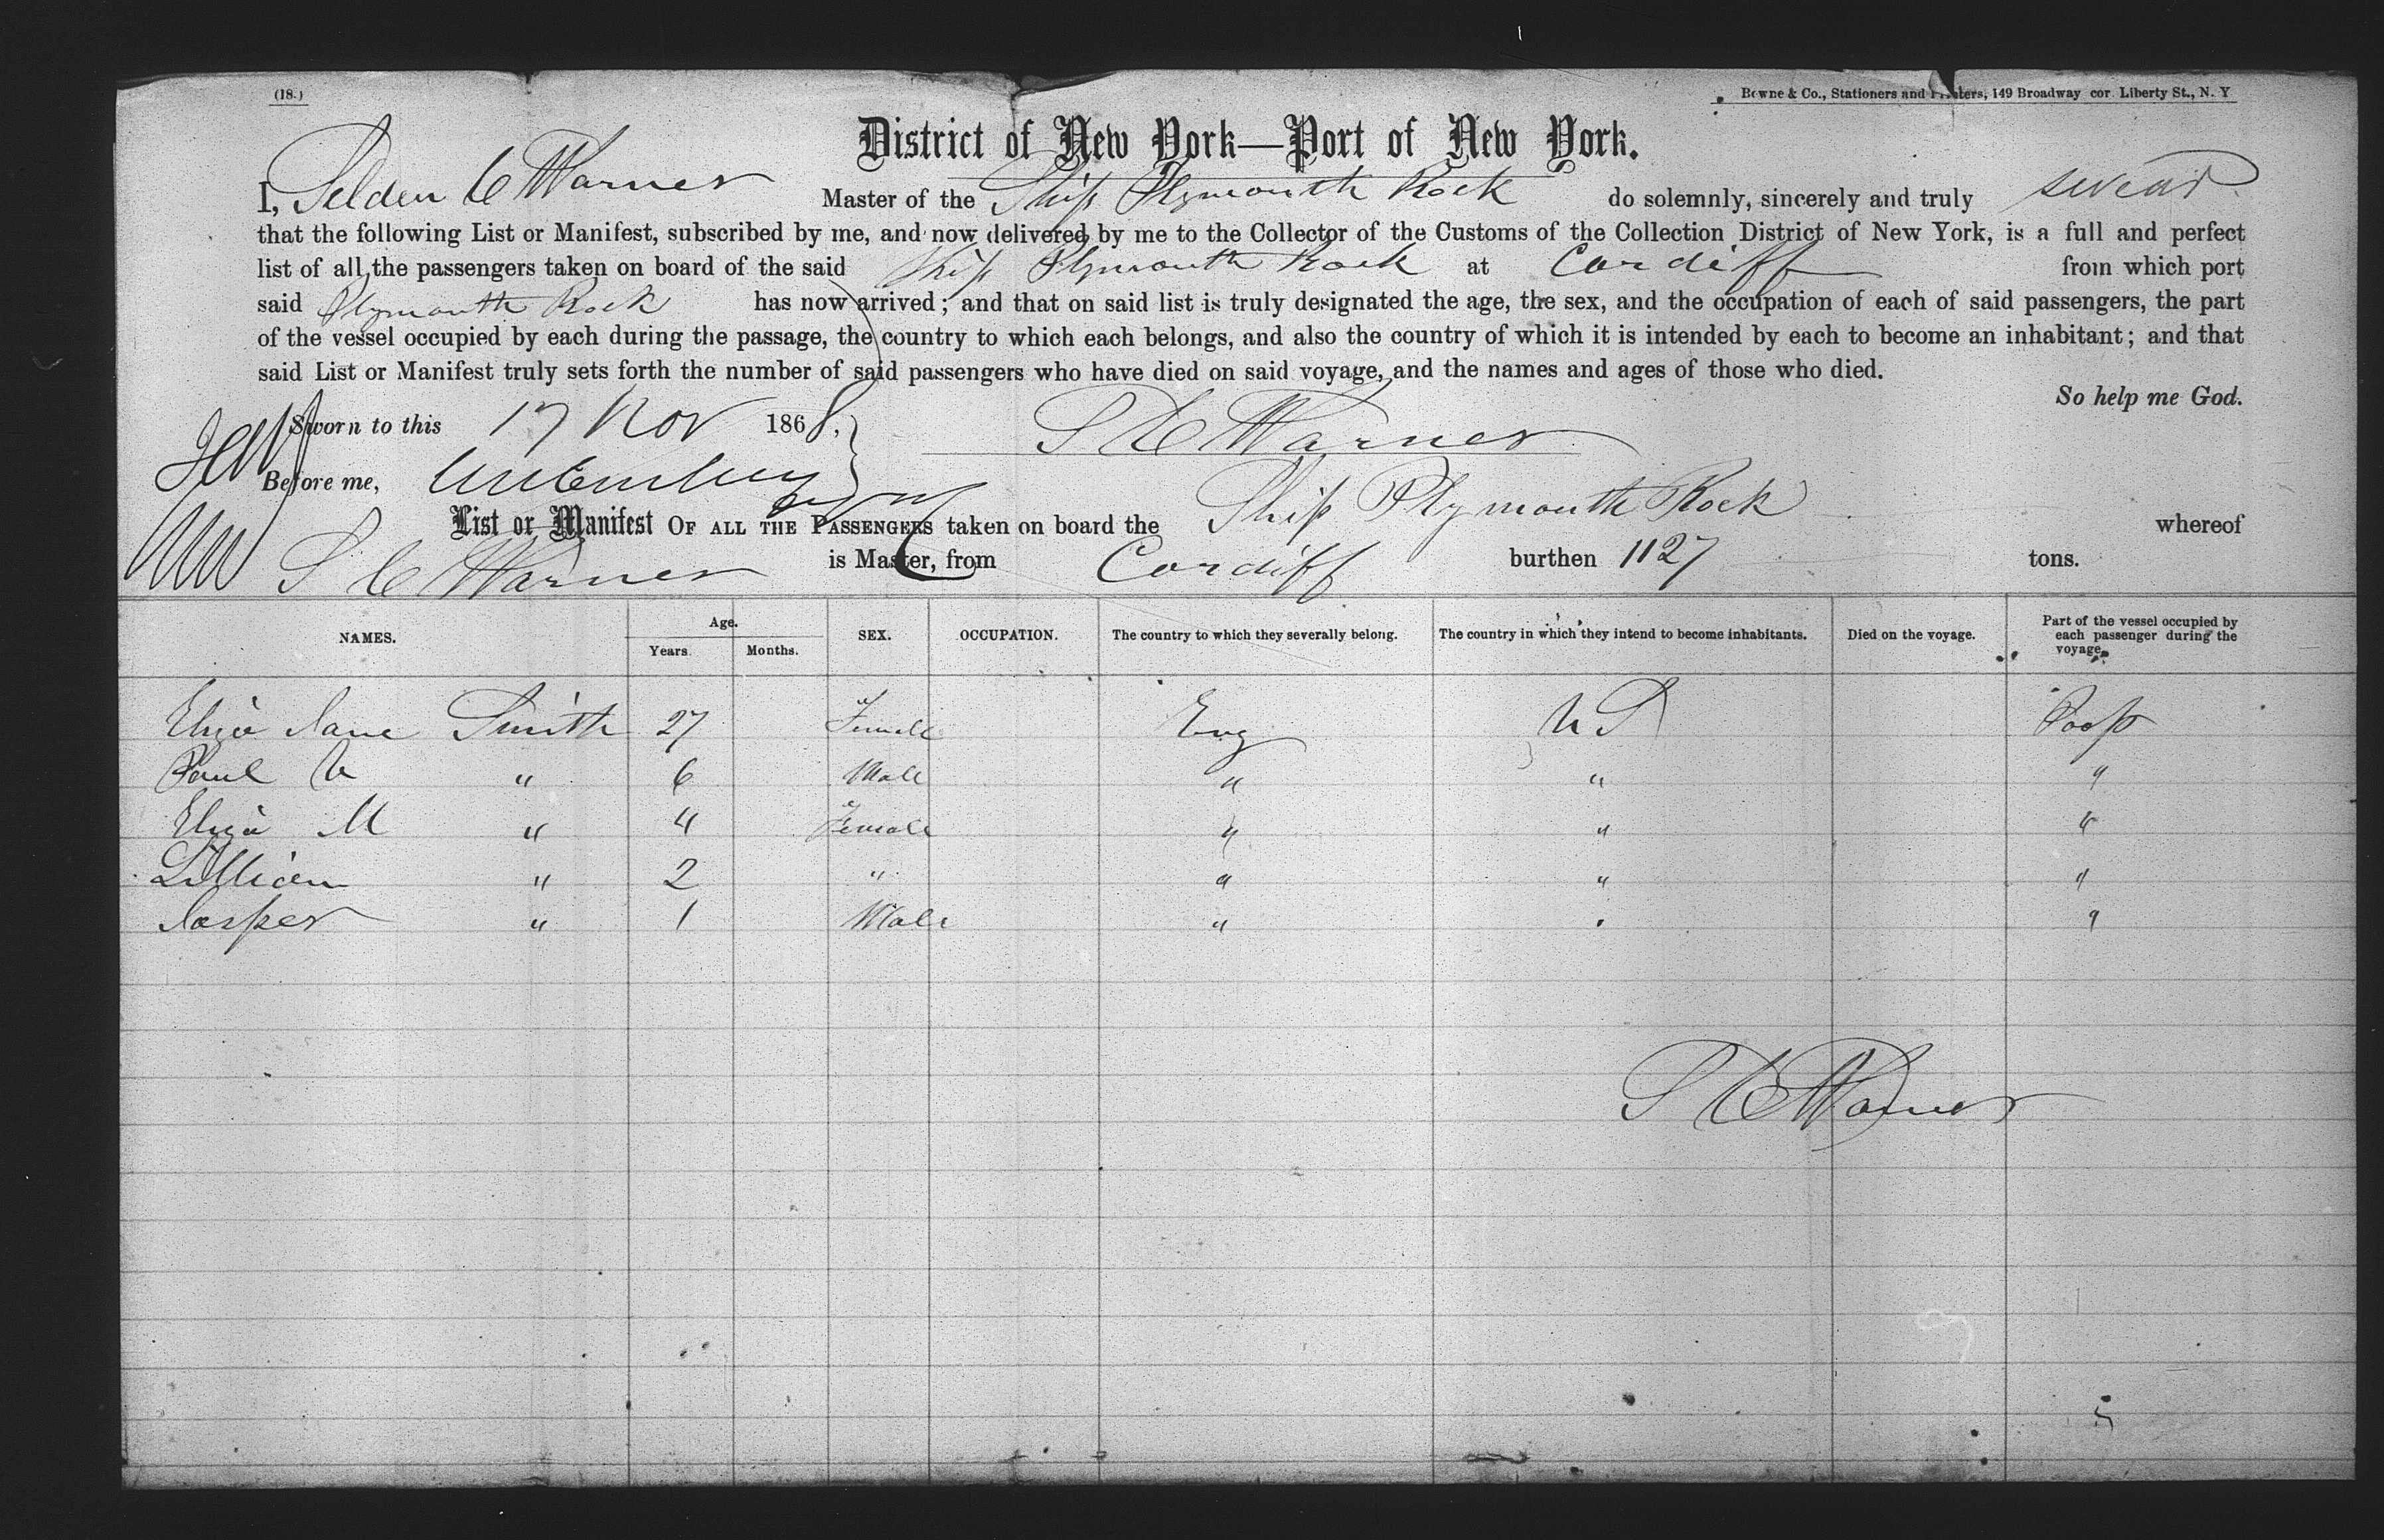 (18.)
Bowne & Co., Stationers and Printers, 149 Broadway cor. Liberty St., N. Y
District of New York—Port of New York.
I, Selden C Warner Master of the Ship Plymouth Rock do solemnly, sincerely and truly swear
that the following List or Manifest, subscribed by me, and now delivered by me to the Collector of the Customs of the Collection District of New York, is a full and perfect
list of all the passengers taken on board of the said Ship Plymouth Rock at Cardiff from which port
said Plymouth Rock has now arrived; and that on said list is truly designated the age, the sex, and the occupation of each of said passengers, the part
of the vessel occupied by each during the passage, the country to which each belongs, and also the country of which it is intended by each to become an inhabitant; and that
said List or Manifest truly sets forth the number of said passengers who have died on said voyage, and the names and ages of those who died.
So help me God.
Sworn to this 17 Nov 1868, S C Warner
Before me,
List or Manifest OF ALL THE PASSENGERS taken on board the Ship Plymouth Rock whereof
S C Warner is Master, from Cardiff burthen 1127 tons.
NAMES. Age. Years. Months. SEX. OCCUPATION. The country to which they severally belong. The country in which they intend to become inhabitants. Died on the voyage. Part of the vessel occupied by each passenger during the voyage.
Eliza Jane Smith 27 Female Eng U S Poop
Paul " 6 Male " " "
Eliza M " 4 Female " " "
Lillian " 2 " " " "
Jasper " 1 Male " " "
S C Warner
5